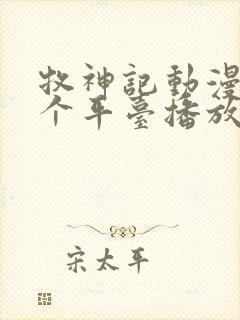 牧神記動漫
个平臺播放
宋太平